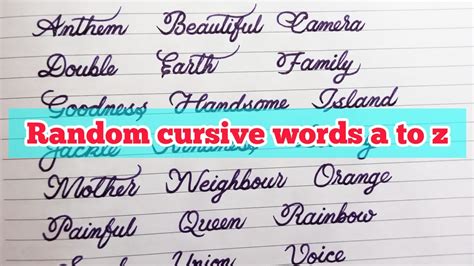 Anthem Beautiful Camera
Double Earth Family
Goodness Handsome Island
Random cursive words a to z
Mother Neighbour Orange
Painful Queen Rainbow
Union Voice